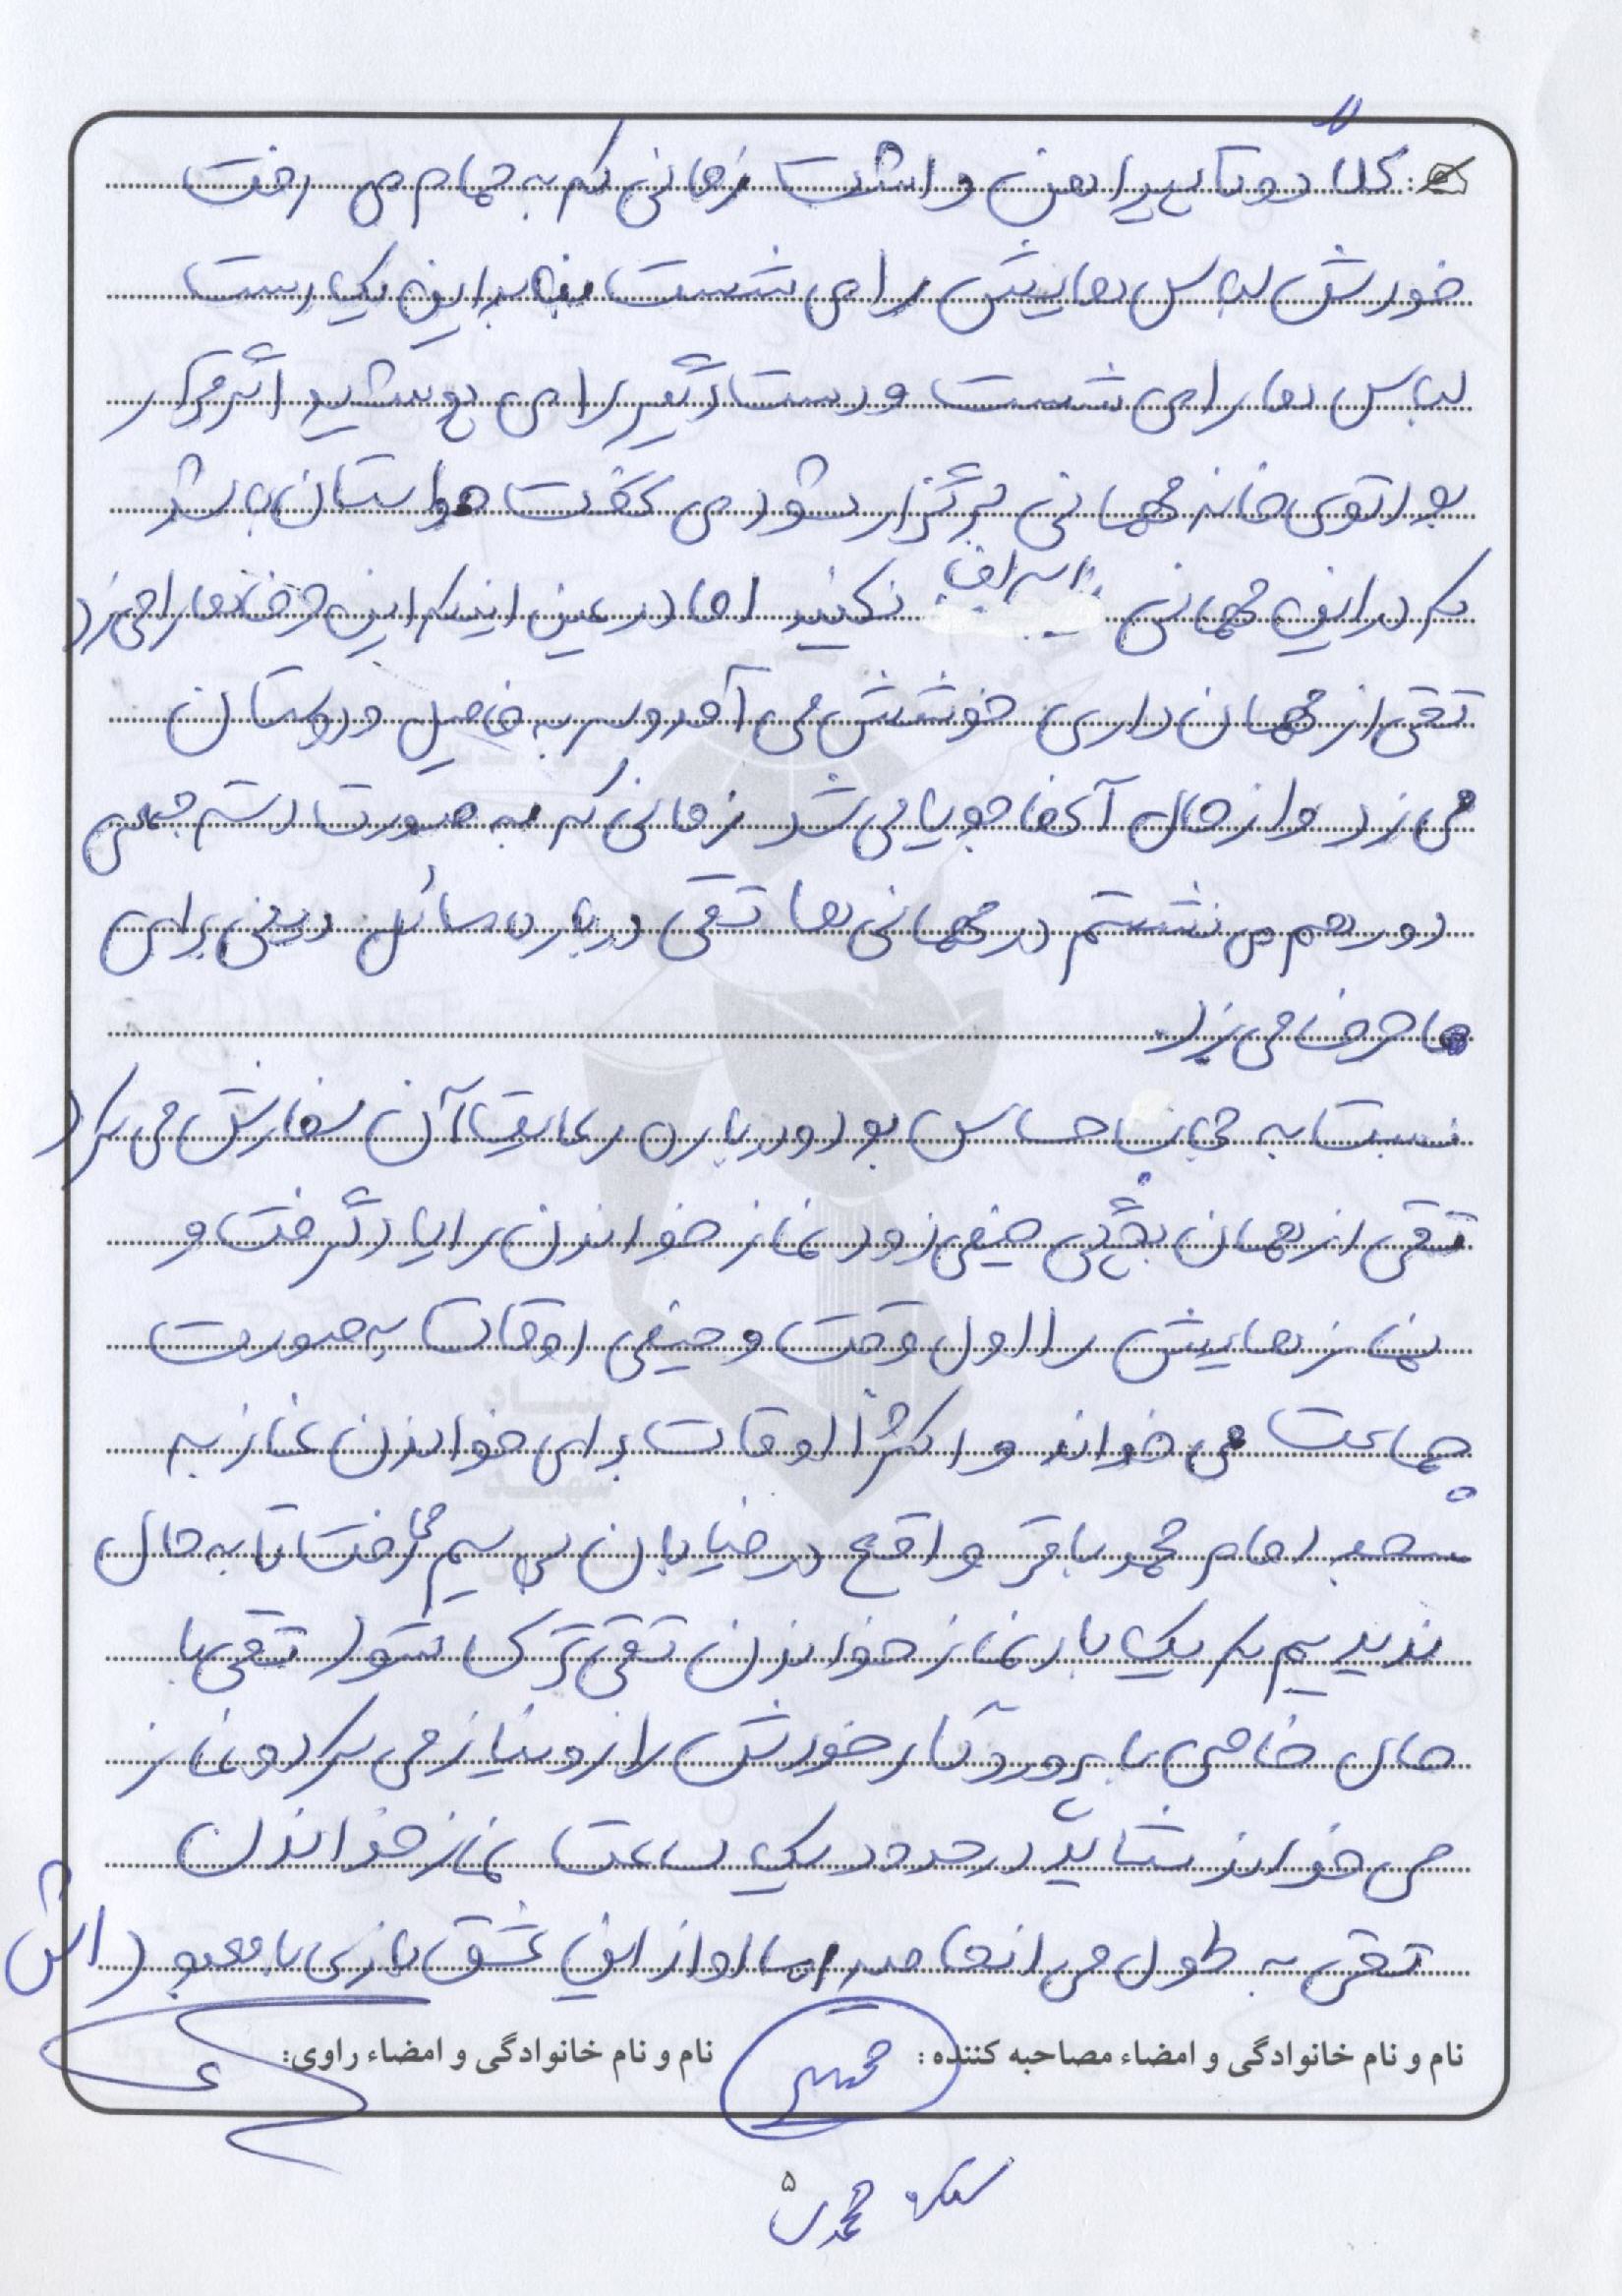 کلاً دو تا پیراهن داشت زمانی که به حمام می رفت
خودش لباس هایش را می شست بنابراین یک دست
لباس ها را می شست و دست دیگر را می پوشید اگر قرار
بود توی خانه مهمانی برگزار شود می گفت حواستان باشد
که در این مهمانی اسراف نکنید اما در عین اینکه این حرف ها را می زد
تقی از مهمان داری خوشش می آمد و سر به فامیل و دوستان
می زد و از حال آنها جویا می شد زمانی که به صورت دسته جمعی
دور هم می نشستیم در مهمانی ها تقی درباره مسائل دینی برای
ما حرف می زد.
نسبت به حجاب حساس بود و درباره رعایت آن سفارش می کرد
تقی از همان بچگی خیلی زود نماز خواندن را یاد گرفت و
نمازهایش را اول وقت و خیلی اوقات به صورت
جماعت می خواند و اکثراً اوقات برای خواندن نماز به
مسجد امام محمد باقر واقع در خیابان بی سیم می رفت تا به حال
ندیدیم که یک بار نماز خواندن تقی ترک شود تقی با
حال خاصی با پروردگار خودش راز و نیاز می کرد و نماز
می خواند شاید در حدود یک ساعت نماز خواندن
تقی به طول می انجامید اما او از این عشق بازی با معبود اش
نام و نام خانوادگی و امضاء مصاحبه کننده :
نام و نام خانوادگی و امضاء راوی:
۵
محمدی